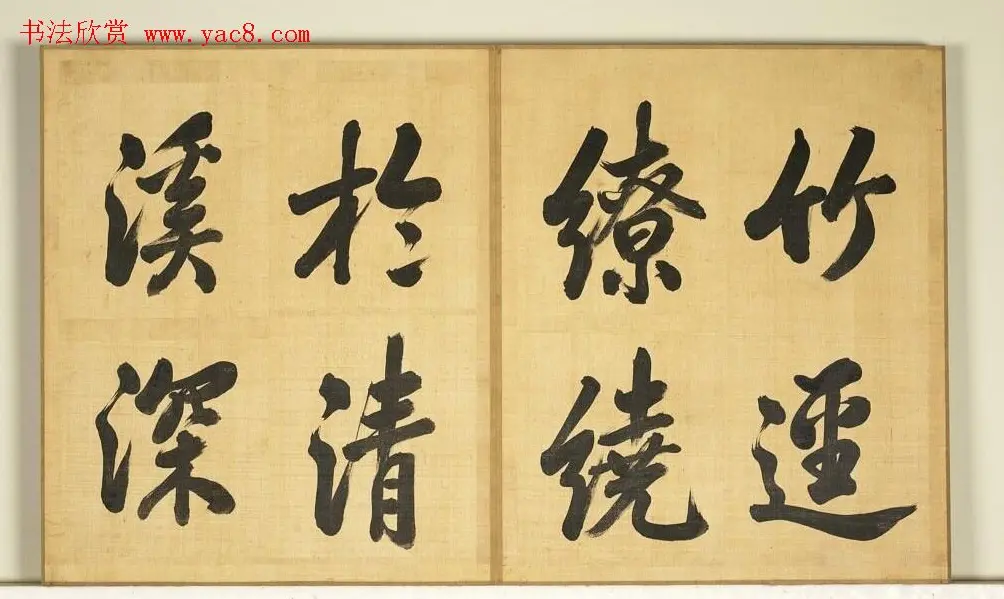 书法欣赏 www.yac8.com
竹逕
繚繞
於清
溪深